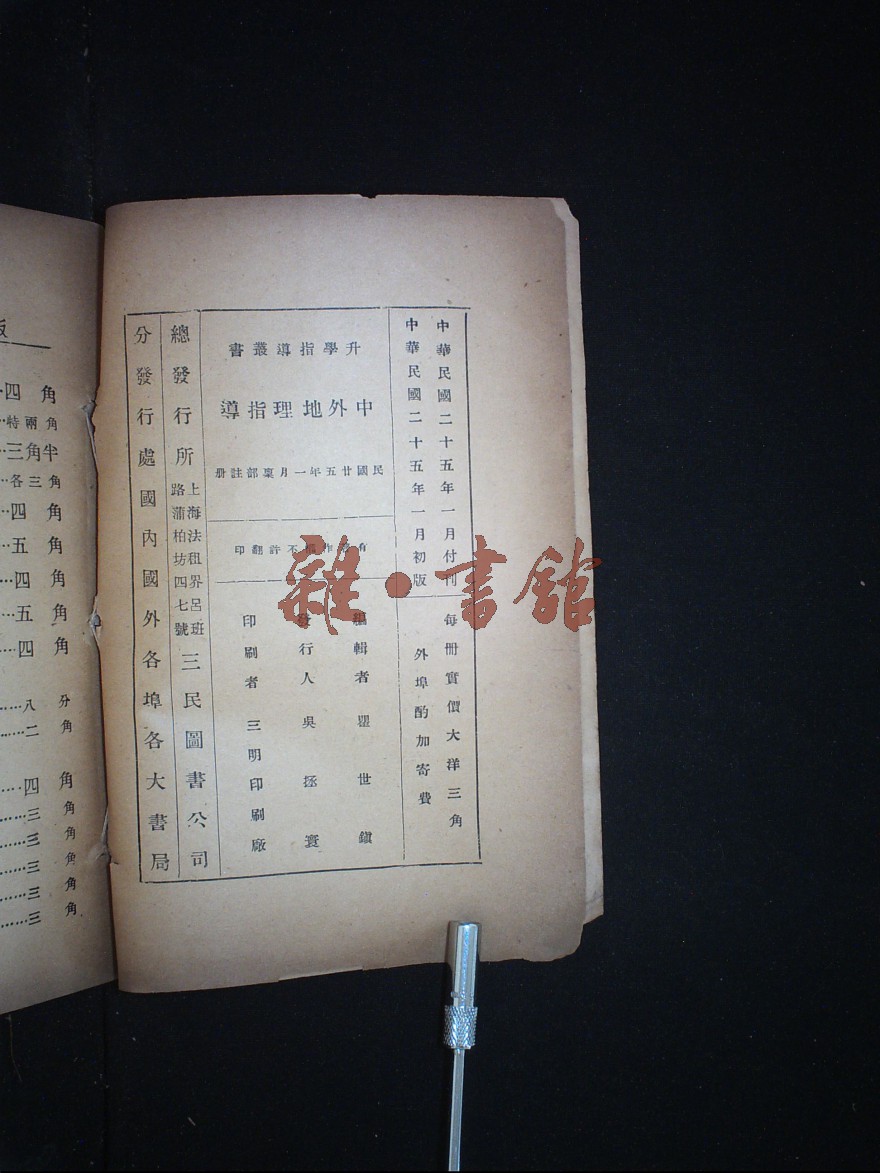 中華民國二十五年一月付刊
中華民國二十五年一月初版
每冊實價大洋三角
外埠酌加寄費
升學指導叢書
中外地理指導
民國廿五年一月稟部註册
有著作權不許翻印
編輯者 瞿世鎮
發行人 吳拯寰
印刷者 三明印刷廠
總發行所 上海法租界呂班路蒲柏坊四七號 三民圖書公司
分發行處國內國外各埠各大書局
雜·書館
版
四角
特兩角
三角半
各三角
四角
五角
四角
五角
四角
八分
二角
四角
三角
三角
三角
三角
三角